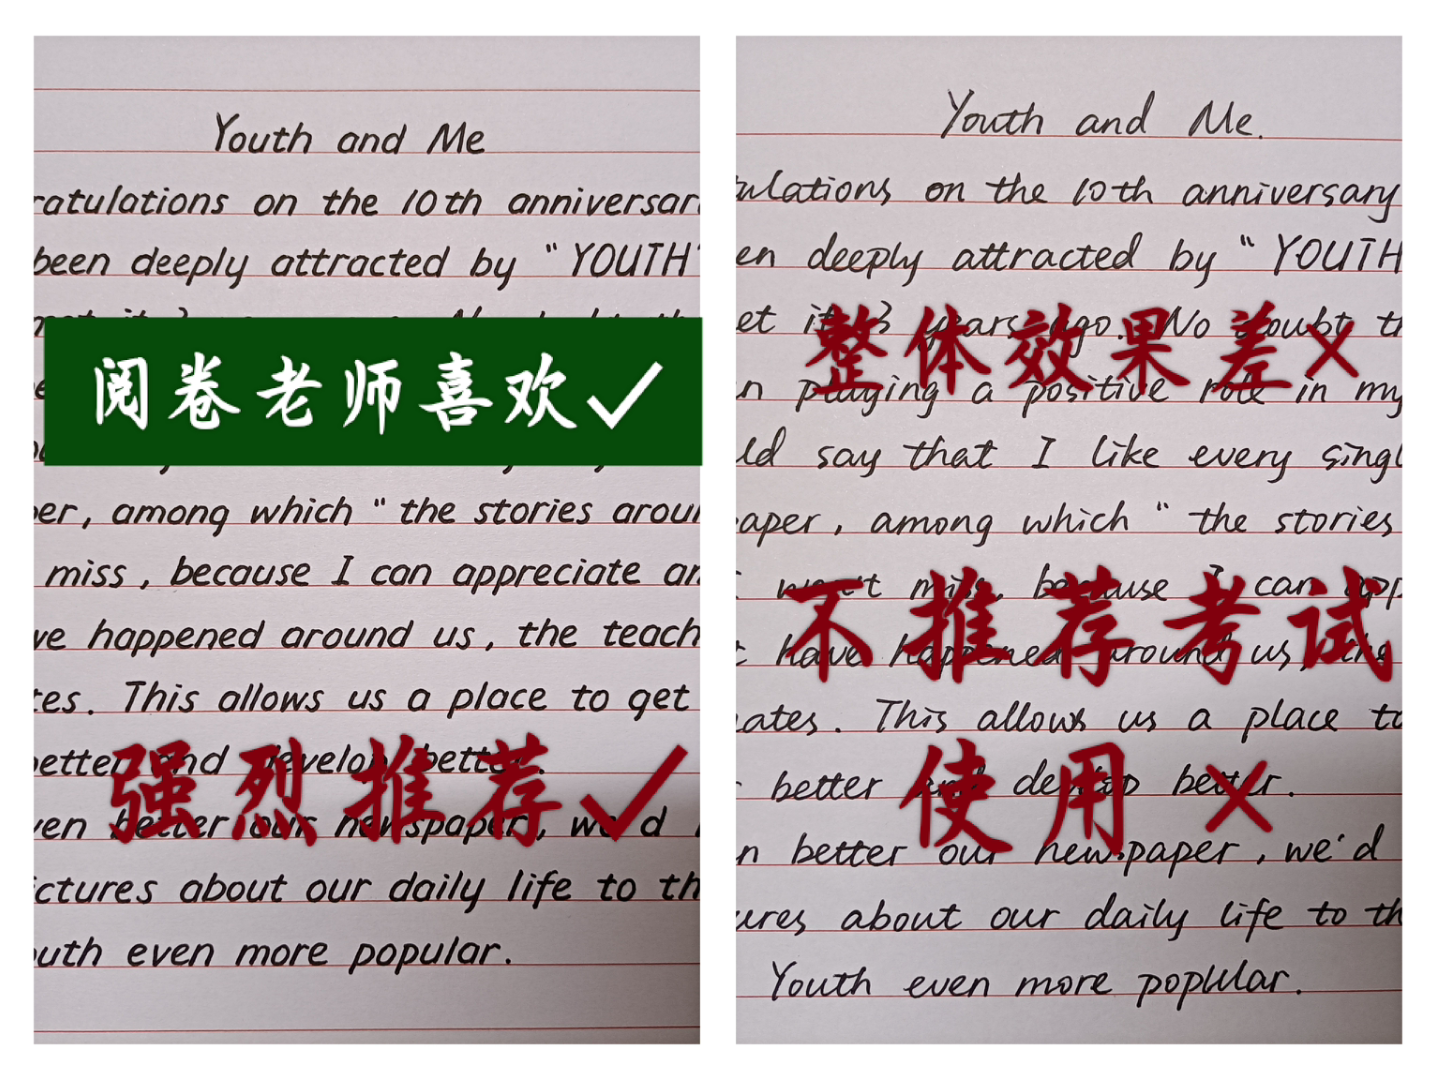 Youth and Me
ratulations on the 10th anniversar
been deeply attracted by "YOUTH"
阅卷老师喜欢✓
er, among which "the stories arou
miss, because I can appreciate an
ve happened around us, the teach
tes. This allows us a place to get
better and develop better.
强烈推荐✓
ven better our newspaper, we'd
ictures about our daily life to th
outh even more popular.
Youth and Me.
ulations on the 10th anniversary
en deeply attracted by "YOUTH
et it 3 years ago. No doubt th
整体效果差×
n playing a positive role in my
ld say that I like every singl
aper, among which "the stories
I won't miss, because I can app
不推荐考试
t have happened around us, the
ates. This allows us a place to
better and develop better.
使用×
n better our newspaper, we'd
ures about our daily life to th
Youth even more popular.